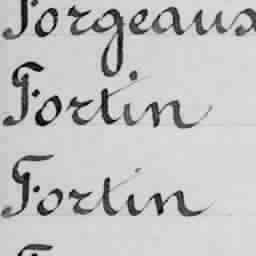 Forgeaux
Fortin
Fortin